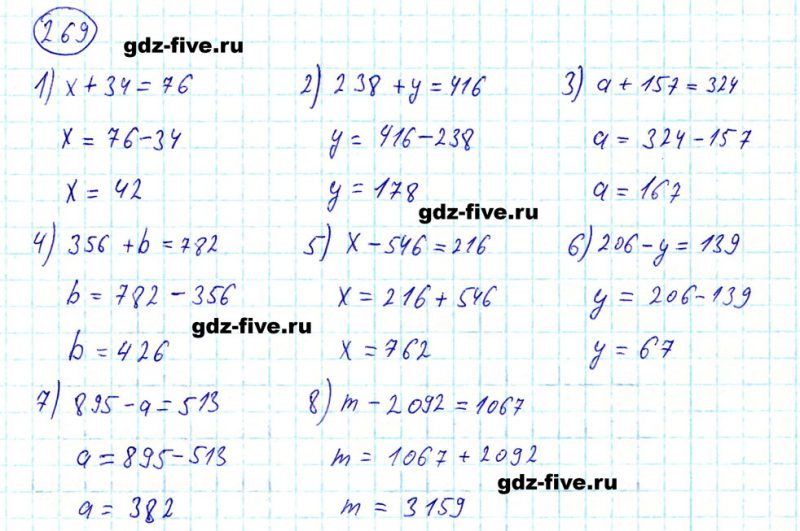 269
gdz-five.ru
1) x + 34 = 76
x = 76 - 34
x = 42
2) 238 + y = 416
y = 416 - 238
y = 178
3) a + 157 = 324
a = 324 - 157
a = 167
gdz-five.ru
4) 356 + b = 782
b = 782 - 356
b = 426
gdz-five.ru
5) x - 546 = 216
x = 216 + 546
x = 762
6) 206 - y = 139
y = 206 - 139
y = 67
7) 895 - a = 513
a = 895 - 513
a = 382
8) m - 2092 = 1067
m = 1067 + 2092
m = 3159
gdz-five.ru